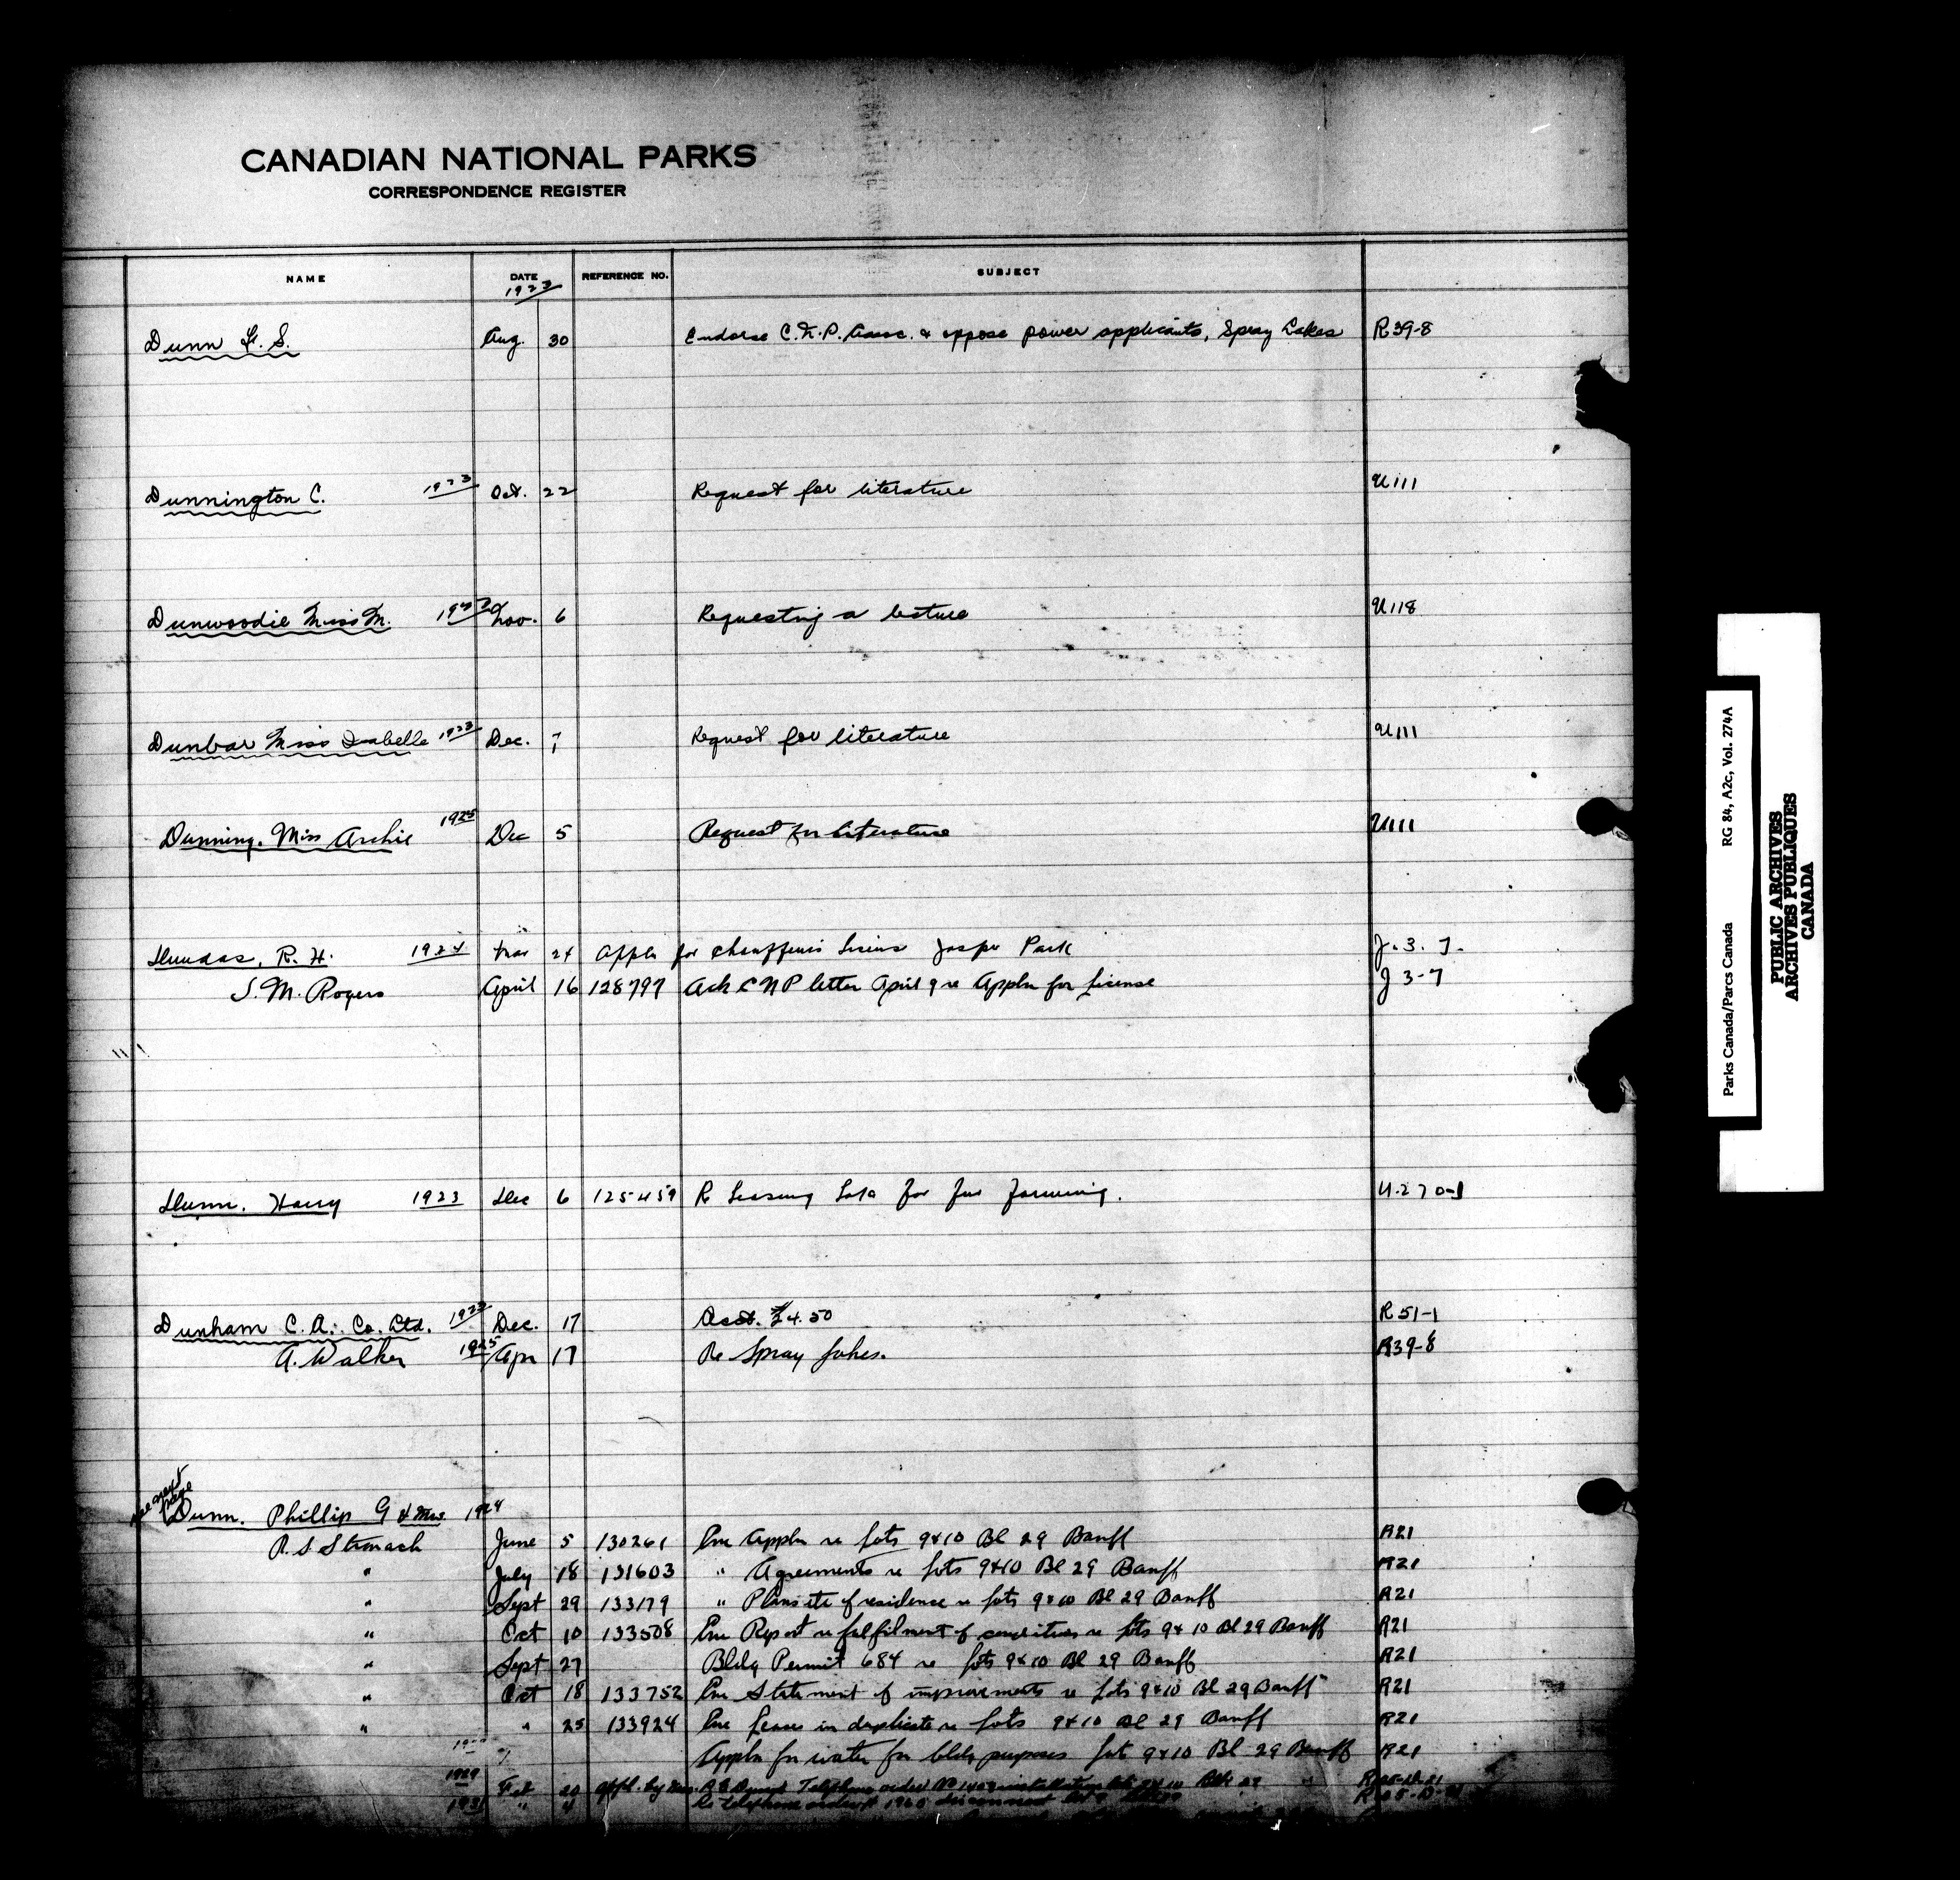 CANADIAN NATIONAL PARKS
CORRESPONDENCE REGISTER
NAME DATE REFERENCE NO. SUBJECT
1923
Dunn F. S. Aug. 30 Endorse C.N.P. Assoc. & oppose power applicants, Spray Lakes R39-8
Dunnington C. 1923 Oct. 22 Request for literature U111
Dunwoodie Miss M. 1923 Nov. 6 Requesting a lecture U118
Dunbar Miss Isabelle 1923 Dec. 7 Request for literature U111
Dunning, Miss Archie 1925 Dec 5 Request for literature U111
Dundas, R. H. 1924 Mar 24 Appln for chauffeurs license Jasper Park J.3.7.
S. M. Rogers April 16 128797 Ack CNP letter April 9 re Appln for license J 3-7
Dunn, Harry 1923 Dec 6 125459 Re Leasing Lots for fur farming. U.270-1
Dunham C. A. Co. Ltd. 1923 Dec. 17 Acct. $4.50 R51-1
A. Walker 1925 Apr 17 Re Spray Lakes. R39-8
see next page
Dunn. Phillip G & Mrs. 1924
R. S. Stronach June 5 130261 Enc Appln re Lots 9&10 Bl 29 Banff R21
" July 18 131603 " Agreements re Lots 9&10 Bl 29 Banff R21
" Sept 29 133179 " Plans etc of residence re Lots 9&10 Bl 29 Banff R21
" Oct 10 133508 Enc Report re fulfilment of conditions re Lots 9&10 Bl 29 Banff R21
" Sept 27 Bldg Permit 684 re Lots 9&10 Bl 29 Banff R21
" Oct 18 133752 Enc Statement of improvements re Lots 9&10 Bl 29 Banff R21
" " 25 133924 Enc Leases in duplicate re Lots 9&10 Bl 29 Banff R21
Appln for water for bldg purposes Lot 9&10 Bl 29 Banff R21
1929 Feb 20 Appl. by Telephone order installation 9&10 Blk 29 "
1931 " Telephone order disconnect
Parks Canada/Parcs Canada RG 84, A2c, Vol. 274A
PUBLIC ARCHIVES
ARCHIVES PUBLIQUES
CANADA